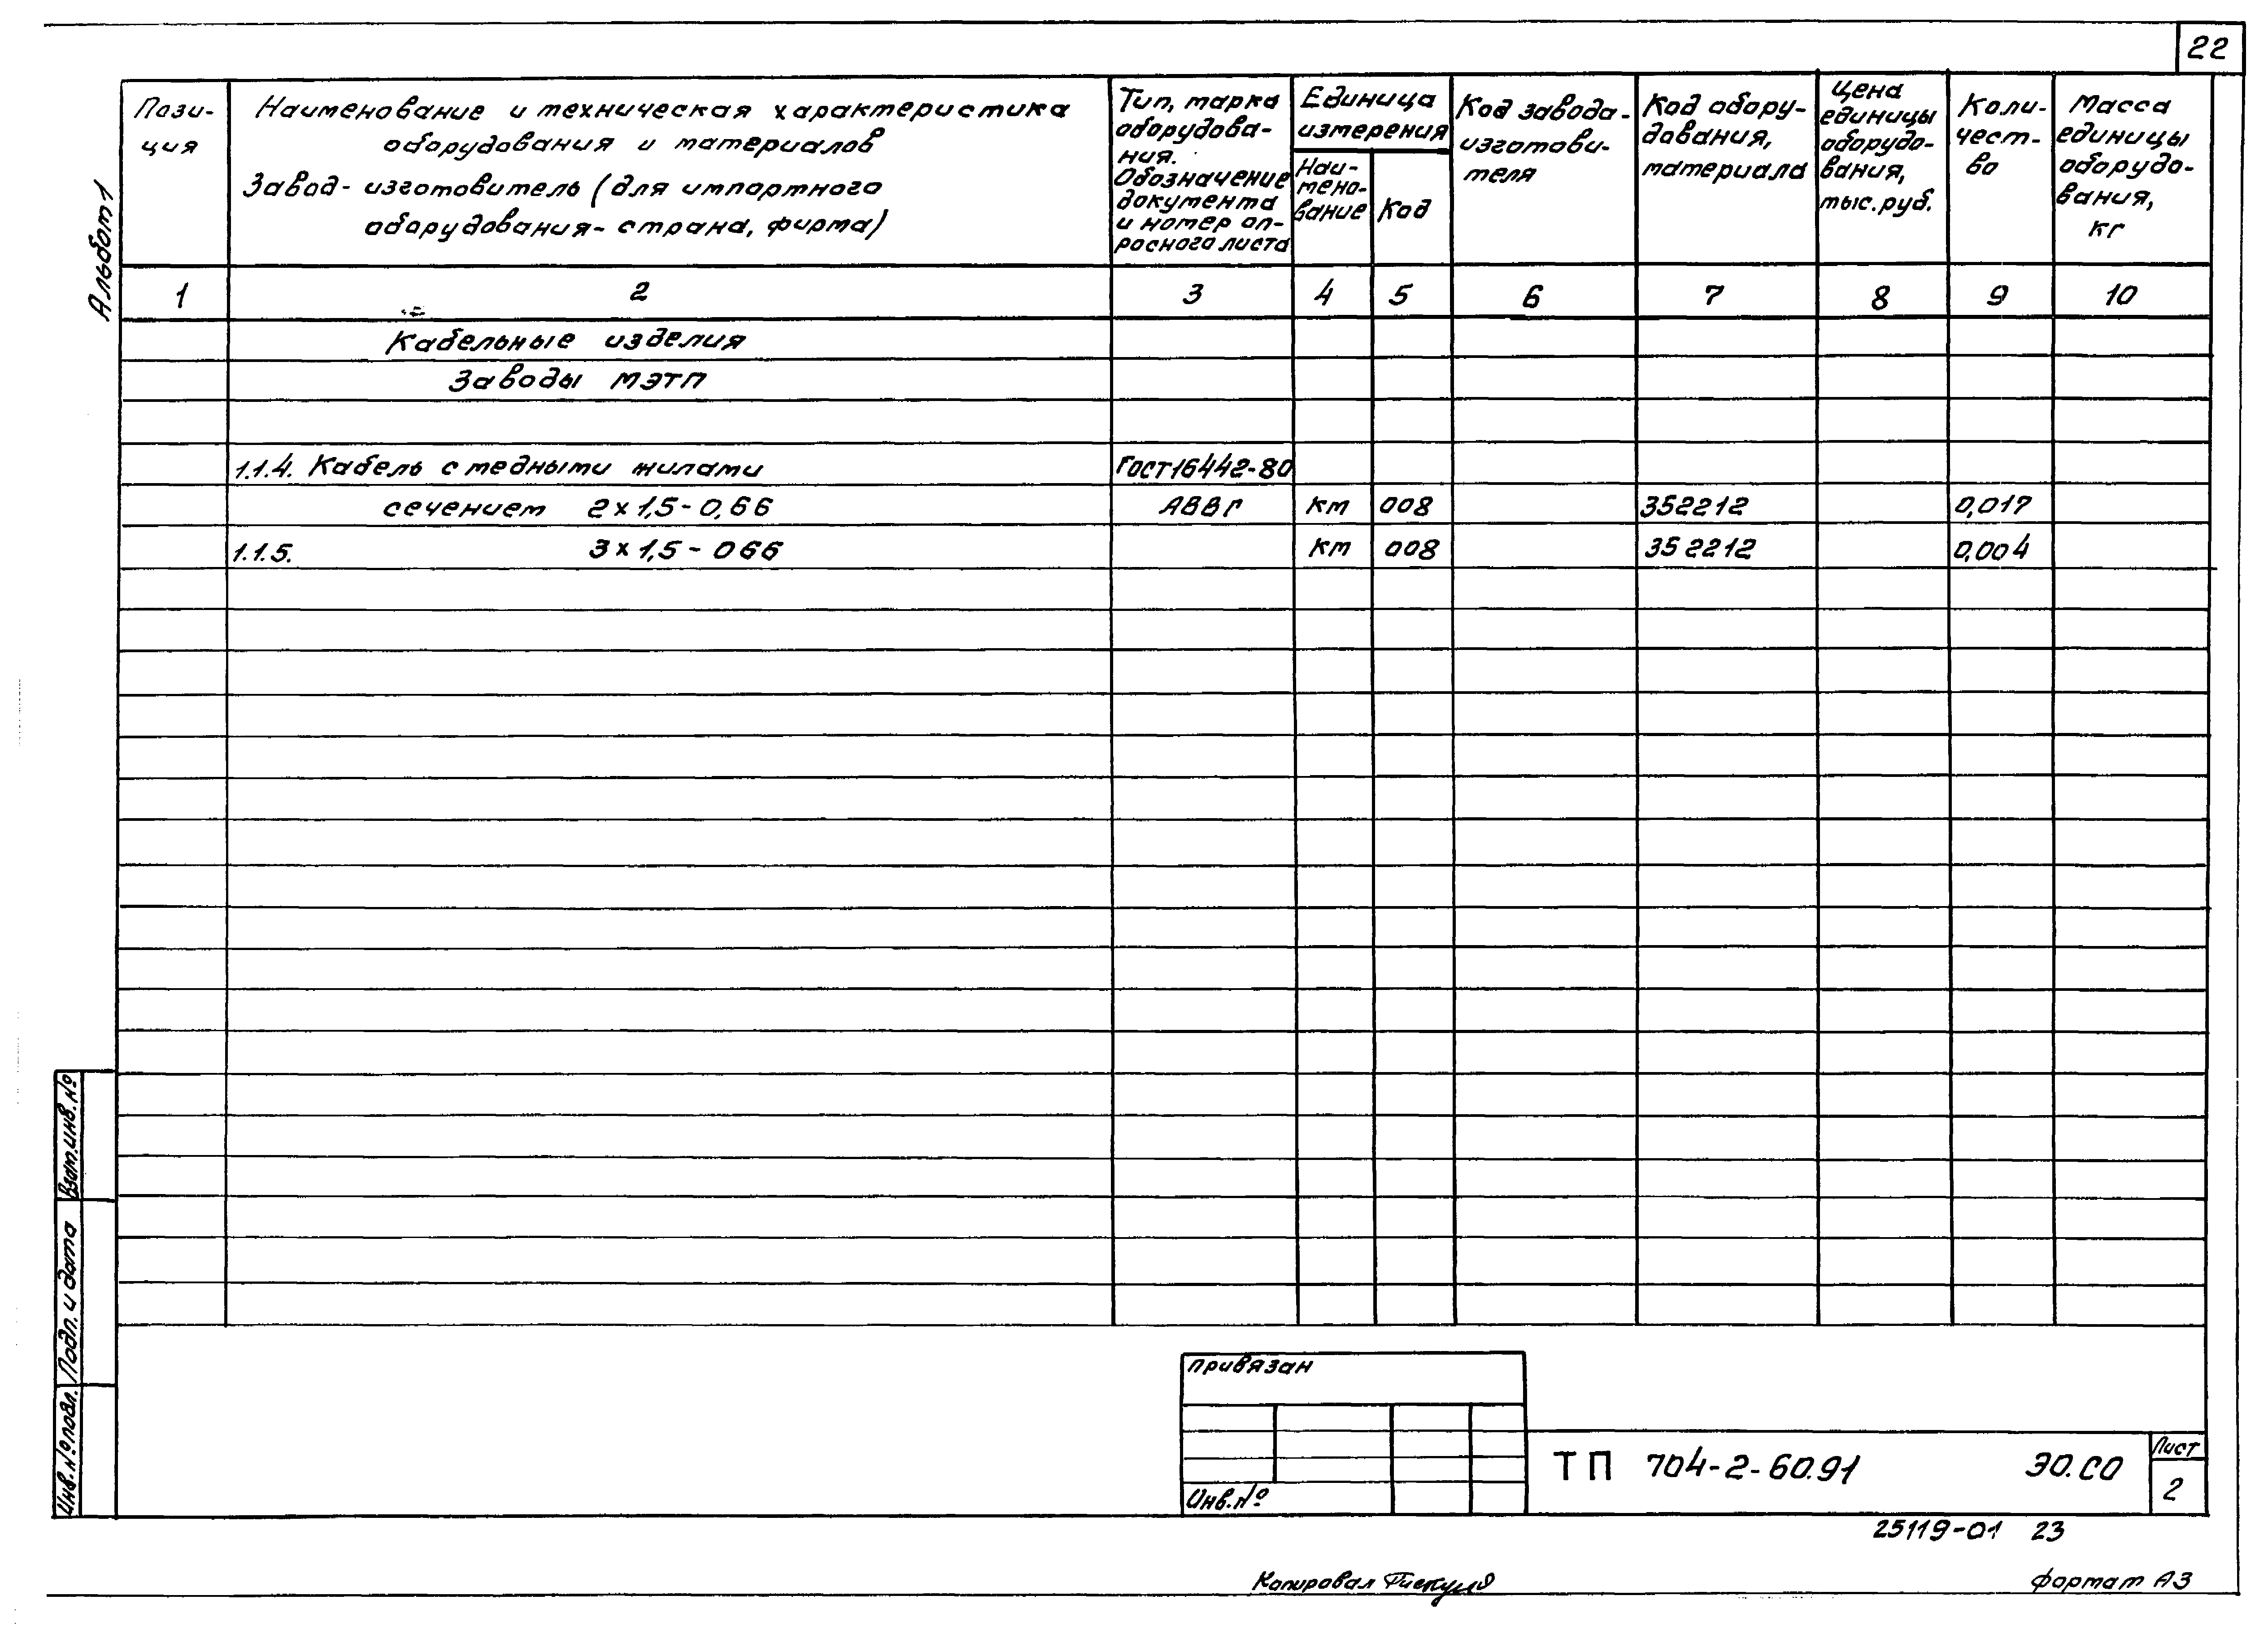 22
Альбом 1
Пози-
ция
Наименование и техническая характеристика
оборудования и материалов
Завод-изготовитель (для импортного
оборудования- страна, фирма)
Тип, марка
оборудова-
ния.
Обозначение
документа
и номер оп-
росного листа
Единица
измерения
Наи-
мено-
вание
Код
Код завода-
изготови-
теля
Код обору-
дования,
материала
Цена
единицы
оборудо-
вания,
тыс.руб.
Коли-
чест-
во
Масса
единицы
оборудо-
вания,
кг
1 2 3 4 5 6 7 8 9 10
Кабельные изделия
Заводы МЭТП
1.1.4. Кабель с медными жилами ГОСТ16442-80
сечением 2х1,5-0,66 АВВГ км 008 352212 0,017
1.1.5. 3х1,5-066 км 008 352212 0,004
Взам.инв.№
Подп. и дата
Инв.№подл.
привязан
Инв.№
ТП 704-2-60.91 ЭО.СО
Лист
2
25119-01 23
Копировал
формат А3